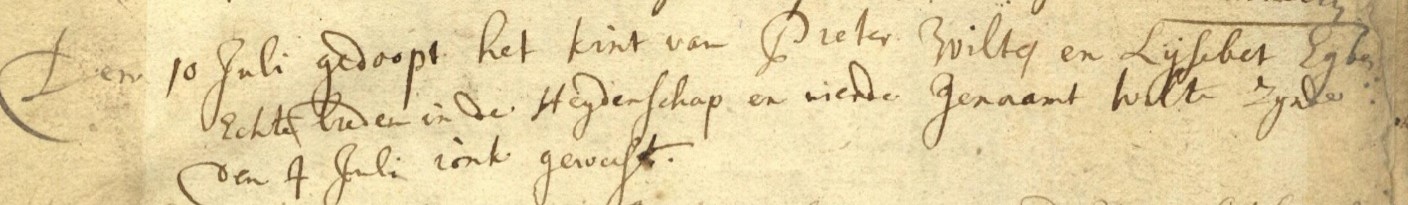 Den 10 Juli gedoopt het kint van Pieter Wiltes en Lijsebet Egber
Echte luden in de Heydenschap en wierde genaamt wilte zynde
den 4 Juli jonk geweest.